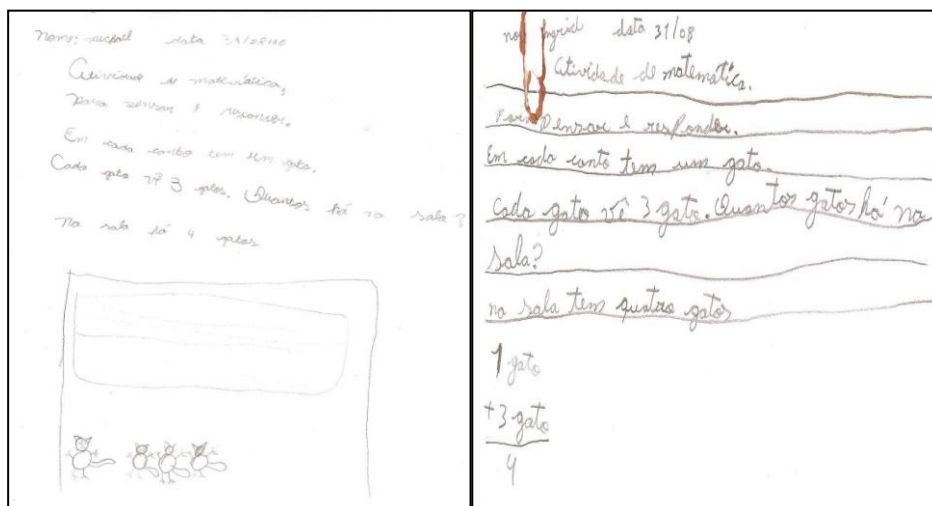 Nome: data 31/08
Atividade de matemática.
Para pensar e responder.
Em cada canto tem um gato.
Cada gato vê 3 gatos. Quantos há na sala?
Na sala há 4 gatos
Ingrid data 31/08
Atividade de matemática.
Para Pensar e resPonder.
Em cada canto tem um gato.
Cada gato vê 3 gato. Quantos gatos há na
sala?
na sala tem quatro gatos
1 gato
+3 gato
4